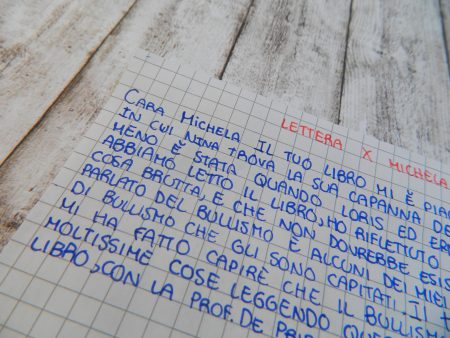 LETTERA X MICHELA
CARA MICHELA IL TUO LIBRO MI È
IN CUI NINA TROVA LA SUA CAPANNA
MENO È STATA QUANDO LORIS ED
ABBIAMO LETTO IL LIBRO, HO RIFLETTUTO
COSA BRUTTA, E CHE NON DOVREBBE
PARLATO DEL BULLISMO E ALCUNI DEI
DI BULLISMO CHE GLI SONO CAPITATI. IL
MI HA FATTO CAPIRE CHE IL BULLISMO
MOLTISSIME COSE LEGGENDO
LIBRO, CON LA PROF. DE